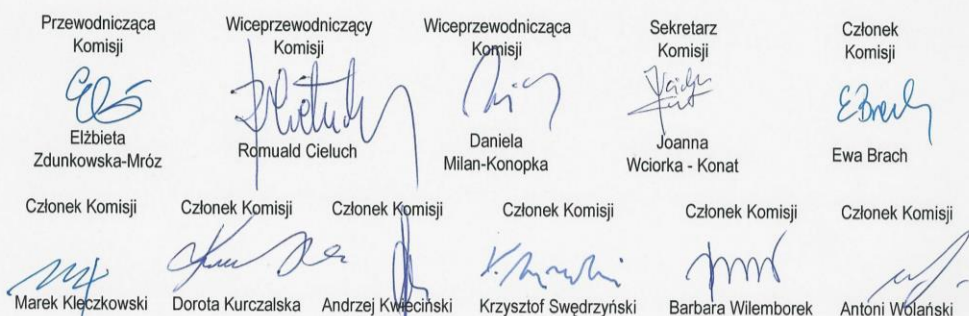 Przewodnicząca Komisji
Elżbieta Zdunkowska-Mróz
Wiceprzewodniczący Komisji
Romuald Cieluch
Wiceprzewodnicząca Komisji
Daniela Milan-Konopka
Sekretarz Komisji
Joanna Wciorka - Konat
Członek Komisji
E Brach
Ewa Brach
Członek Komisji
Marek Kleczkowski
Członek Komisji
Dorota Kurczalska
Członek Komisji
Andrzej Kwieciński
Członek Komisji
Krzysztof Swędrzyński
Członek Komisji
Barbara Wilemborek
Członek Komisji
Antoni Wolański